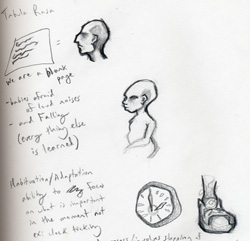 Tabula Rasa
=
we are a blank
page
- babies afraid
of loud noises
- and Falling
(every thing else
is learned)
Habituation/Adaptation
ability to focus
on what is important
in the moment not
ex: clock ticking